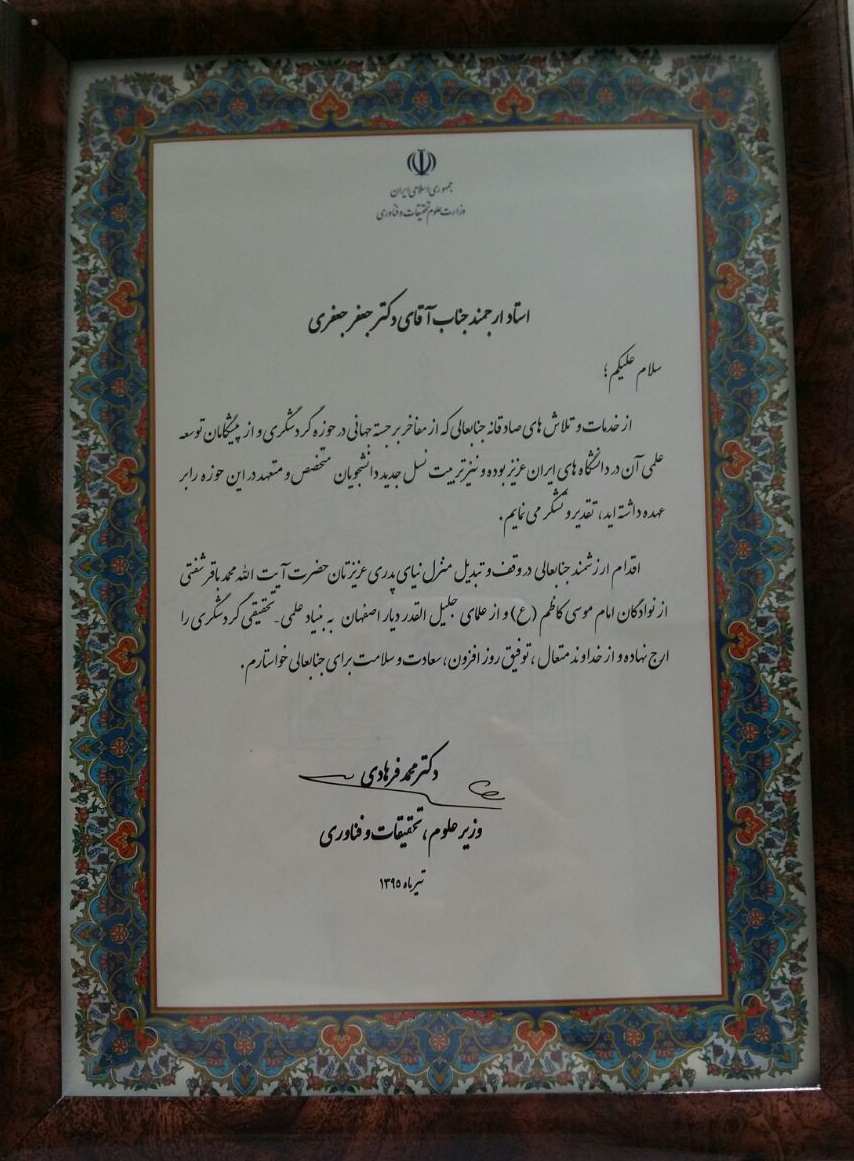 جمهوری اسلامی ایران
وزارت علوم تحقیقات و فناوری
استاد ارجمند جناب آقای دکتر جعفر جعفری
سلام علیکم؛
از خدمات و تلاش های صادقانه جنابعالی که از مفاخر برجسته جهانی در حوزه گردشگری و از پیشگامان توسعه
علمی آن در دانشگاه های ایران عزیز بوده و نیز تربیت نسل جدید دانشجویان متخصص و متعهد در این حوزه را بر
عهده داشته اید، تقدیر و تشکر می نمایم.
اقدام ارزشمند جنابعالی در وقف و تبدیل منزل نیای پدری عزیزتان حضرت آیت الله محمد باقر شفتی
از نوادگان امام موسی کاظم (ع) و از علمای جلیل القدر دیار اصفهان به بنیاد علمی-تحقیقی گردشگری را
ارج نهاده و از خداوند متعال، توفیق روز افزون، سعادت و سلامت برای جنابعالی خواستارم.
دکتر محمد فرهادی
وزیر علوم، تحقیقات و فناوری
تیر ماه ۱۳۹۵